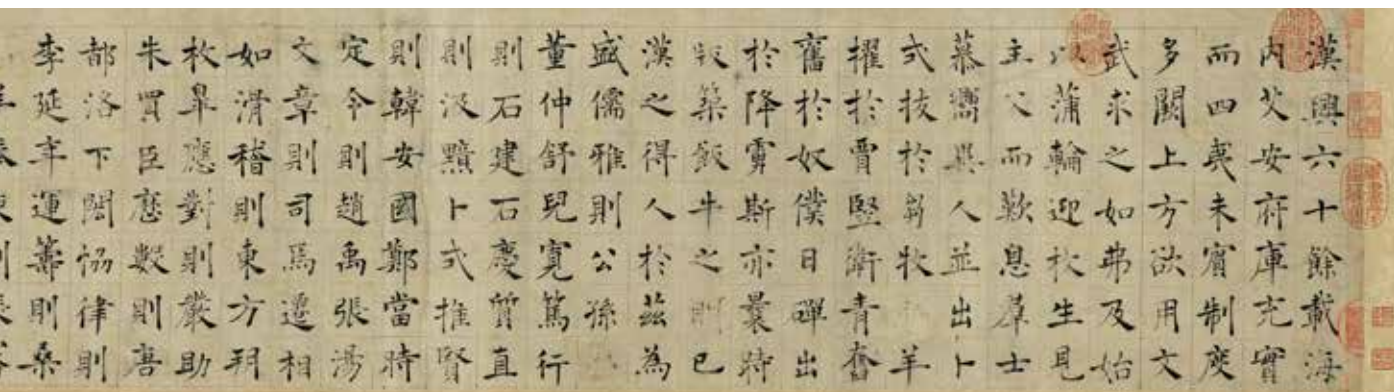 漢興六十餘載海
内乂安府庫充實
而四夷未賓制度
多闕上方欲用文
武求之如弗及始
以蒲輪迎枚生見
主父而歎息羣士
慕嚮異人並出卜
式拔於芻牧羊
擢於賈豎衛青奮
舊於奴僕日磾出
於降虜斯亦曩時
版築飯牛之已
漢之得人於茲為
盛儒雅則公孫
董仲舒兒寬篤行
則石建石慶質直
則汲黯卜式推賢
則韓安國鄭當時
定令則趙禹張湯
文章則司馬遷相
如滑稽則東方朔
枚皋應對則嚴助
朱買臣歷數則唐
都洛下閎協律則
李延年運籌則桑